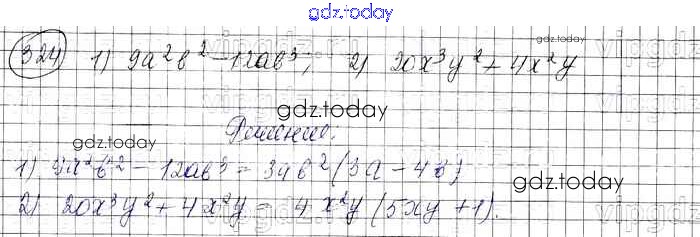 gdz.today
324) 1) 9a²b² - 12ab³; 2) 20x³y² + 4x²y
gdz.today
vipgdz
gdz.today
gdz.today
Решение:
1) 9a²b² - 12ab³ = 3ab²(3a - 4b)
gdz.today
2) 20x³y² + 4x²y = 4x²y (5xy + 1).